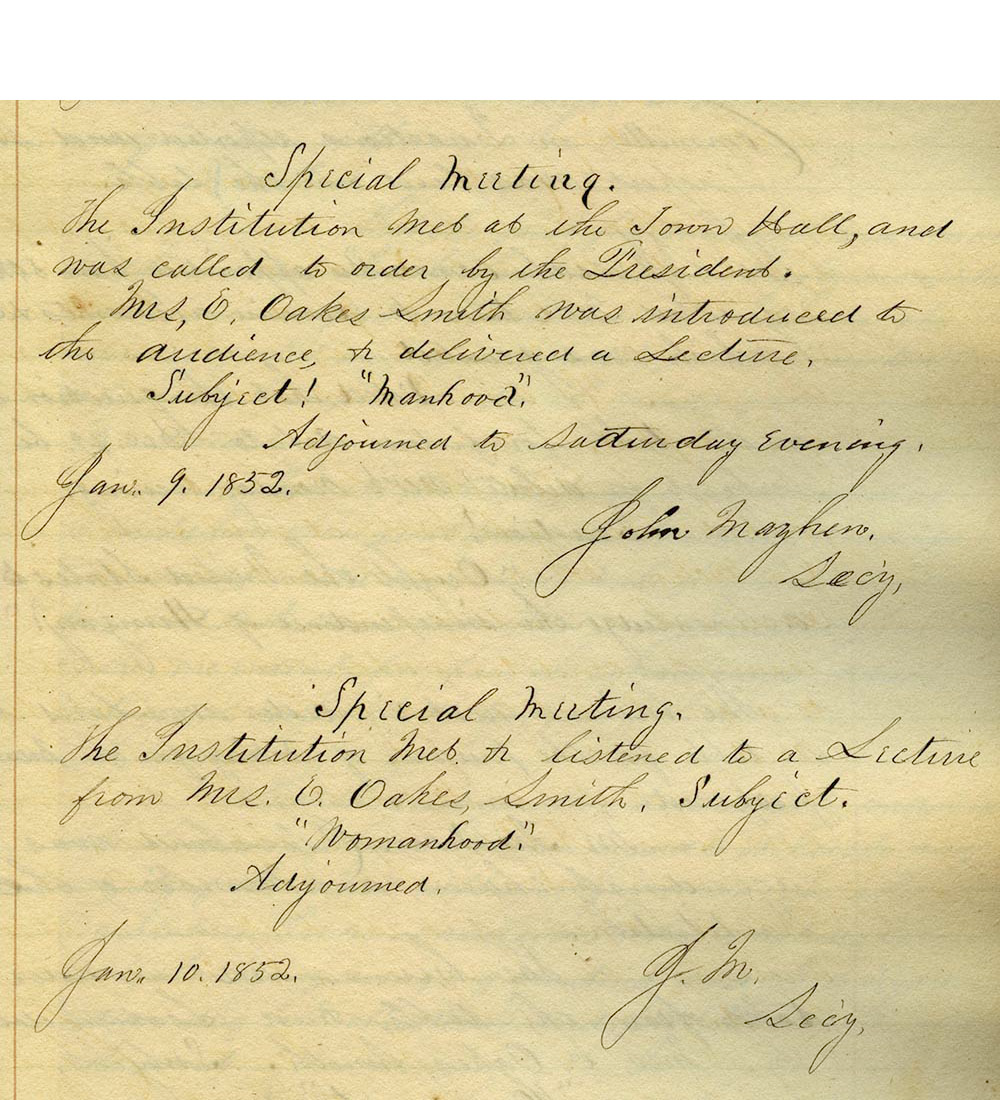 Special Meeting.
The Institution met at the Town Hall, and
was called to order by the President.
Mrs, E. Oakes Smith was introduced to
the audience, & delivered a Lecture.
Subject! "Manhood".
Adjourned to Saturday Evening.
Jan. 9. 1852.
John Mayhew.
Secy,
Special Meeting.
The Institution met. & listened to a Lecture
from Mrs. E. Oakes Smith. Subject.
"Womanhood".
Adjourned.
Jan. 10. 1852.
J. M.
Secy,